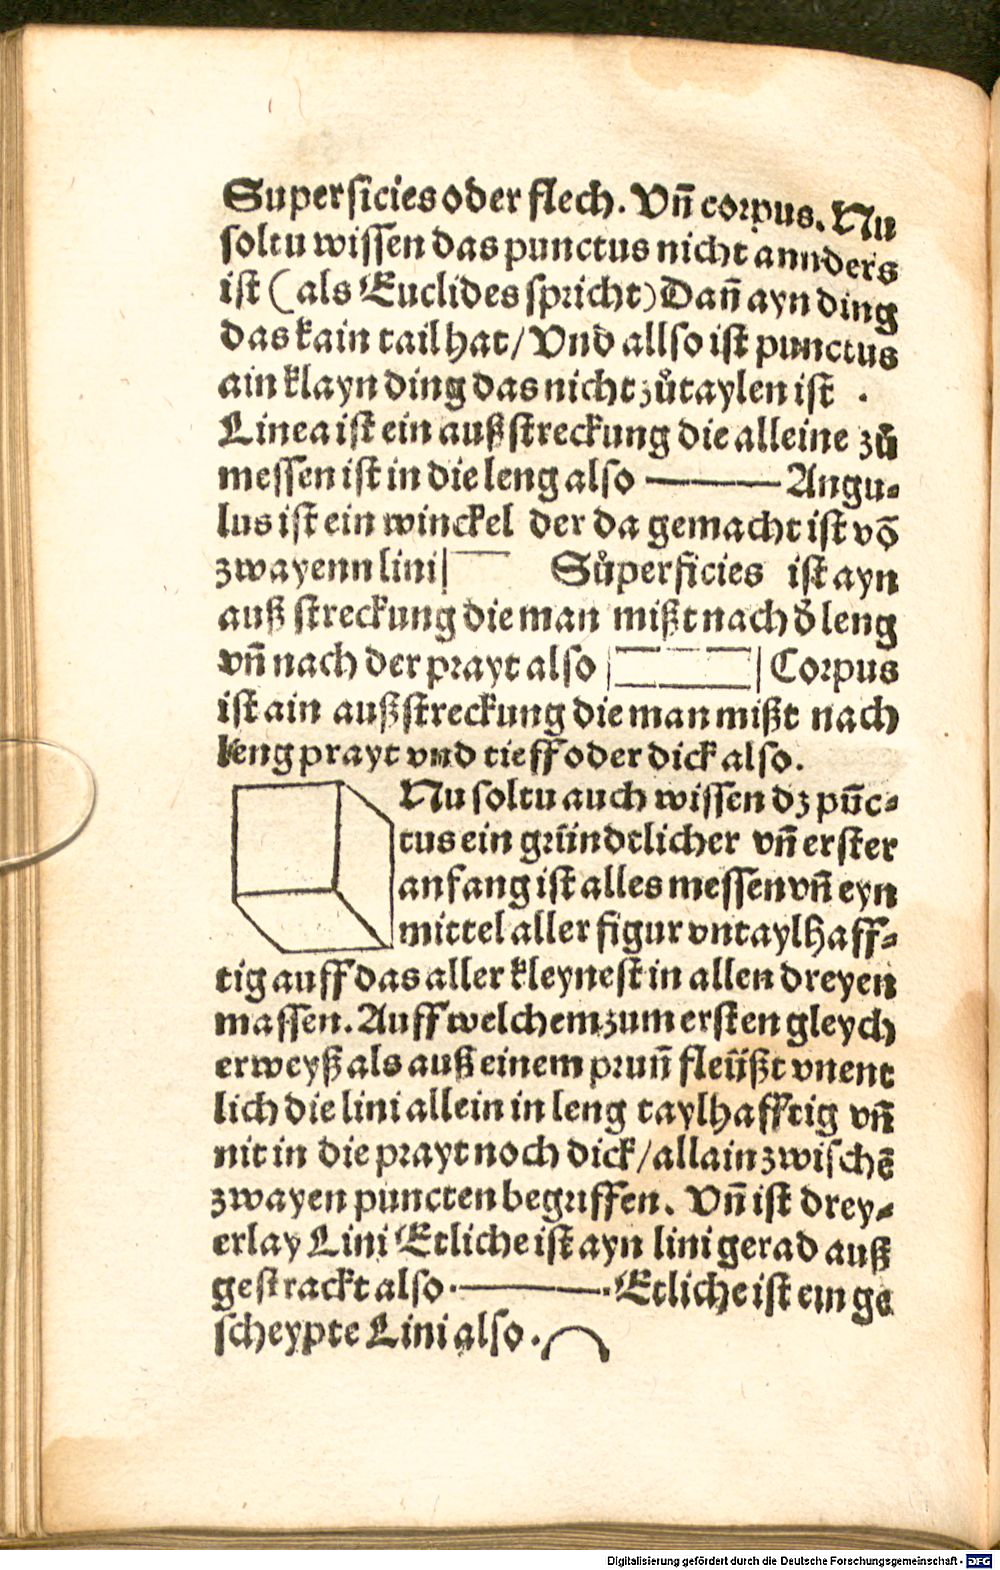 Superficies oder flech. Vn̄ corpus. Nu
soltu wissen das punctus nicht annders
ist (als Euclides spricht) Dan̄ ayn ding
das kain tail hat/ Vnd allso ist punctus
ain klayn ding das nicht zůtaylen ist .
Linea ist ein außstreckung die alleine zů
messen ist in die leng also Angu-
lus ist ein winckel der da gemacht ist vō
zwayenn lini Sůperficies ist ayn
auß streckung die man mißt nach d̄ leng
vn̄ nach der prayt also Corpus
ist ain außstreckung die man mißt nach
leng prayt vnd tieff oder dick also.
Nu soltu auch wissen dz pūc-
tus ein gründtlicher vn̄ erster
anfang ist alles messen vn̄ eyn
mittel aller figur vntaylhaff-
tig auff das aller kleynest in allen dreyen
massen. Auff welchem zum ersten gleych
erweyß als auß einem prun̄ fleüßt vnent
lich die lini allein in leng taylhafftig vn̄
nit in die prayt noch dick/allain zwischē
zwayen puncten begriffen. Vn̄ ist drey-
erlay Lini Etliche ist ayn lini gerad auß
gestrackt also. . Etliche ist ein ge
scheypte Lini also.
Digitalisierung gefördert durch die Deutsche Forschungsgemeinschaft - DFG